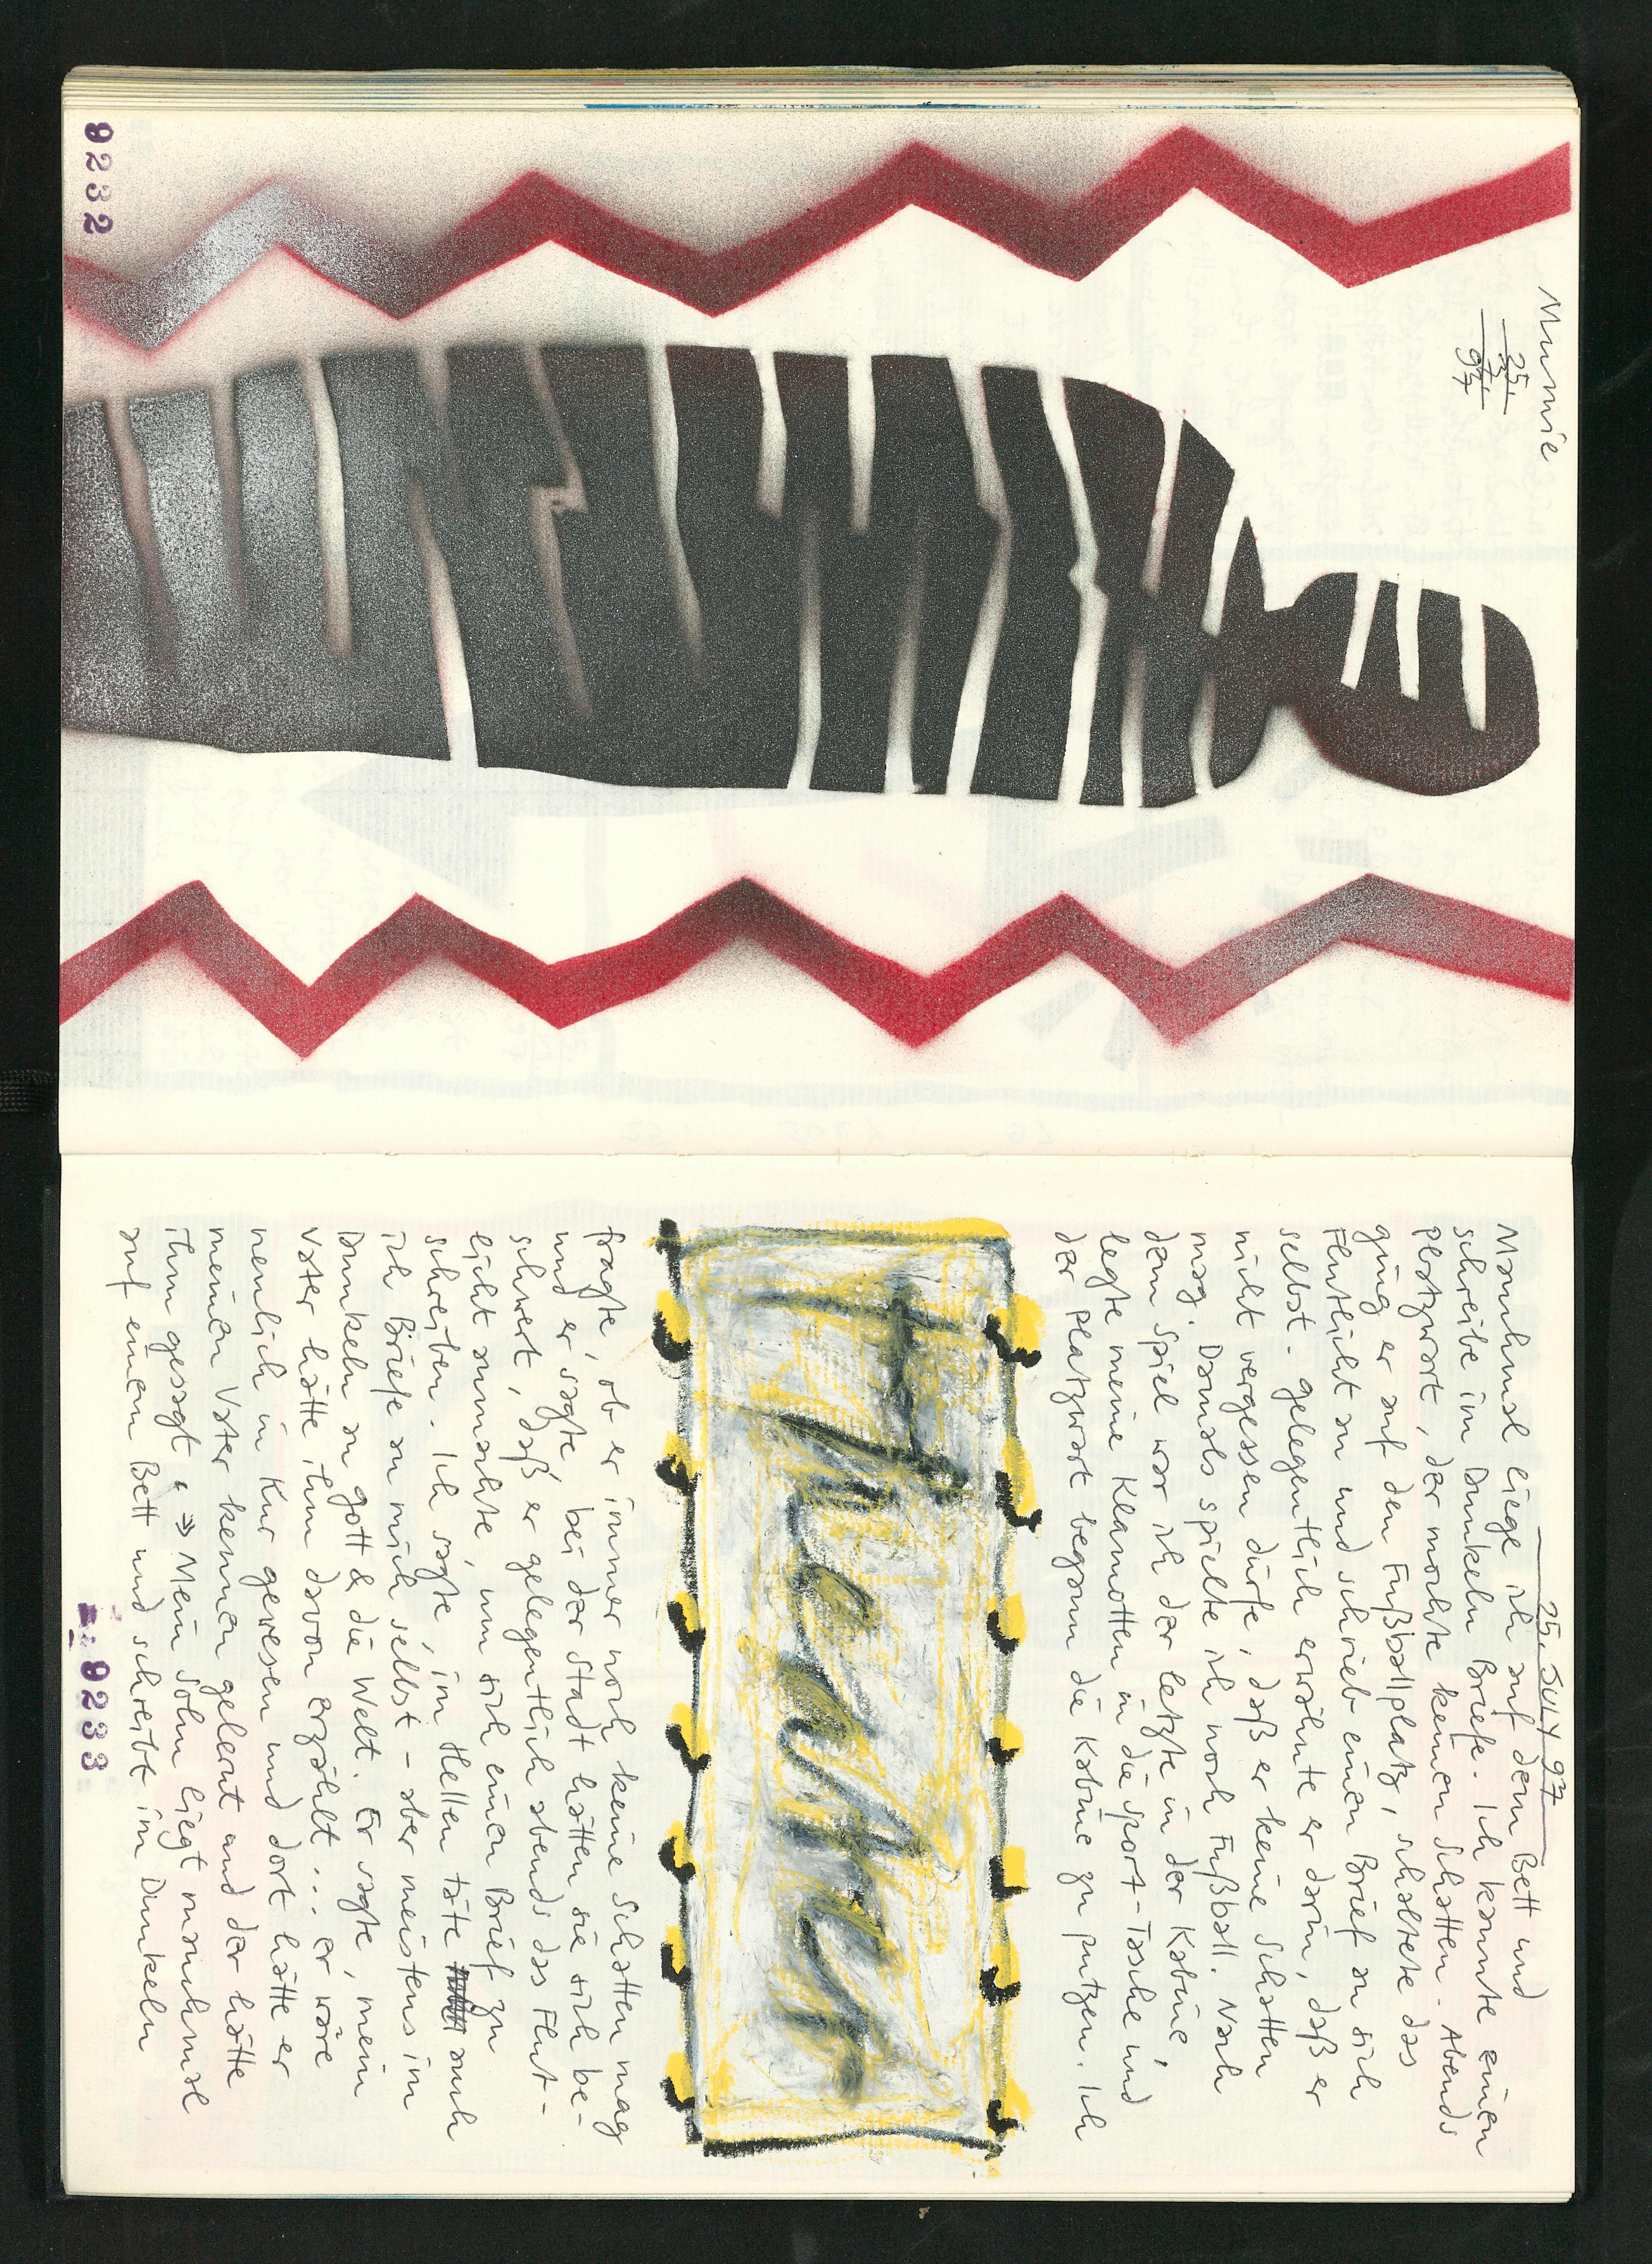 9232
Mumie
25.
7.
97
25. JULY 97
Manchmal liege ich auf dem Bett und
schreibe im Dunkeln Briefe. Ich kannte einen
Platzwart, der mochte keinen Schatten. Abends
ging er auf den Fußballplatz, schaltete das
Flutlicht an und schrieb einen Brief an sich
selbst. gelegentlich erwähnte er darin, daß er
nicht vergessen dürfe, daß er keine Schatten
mag. Damals spielte ich noch Fußball. Nach
dem Spiel war ich der letzte in der Kabine,
legte meine Klamotten in die Sport-Tasche und
der Platzwart begann die Kabine zu putzen. Ich
fragte, ob er immer noch keine Schatten mag
und er sagte, bei der Stadt hätten sie sich be-
schwert, daß er gelegentlich abends das Flut-
licht anmachte, um sich einen Brief zu
schreiben. Ich sagte, im Hellen täte auch
ich Briefe an mich selbst - aber meistens im
Dunkeln an gott & die Welt. Er sagte, mein
Vater hätte ihm davon erzählt... er wäre
nemlich in Kur gewesen und dort hätte er
meinen Vater kennen gelernt und der hätte
ihm gesagt: => Mein Sohn liegt manchmal
auf einem Bett und schreibt im Dunkeln
9233